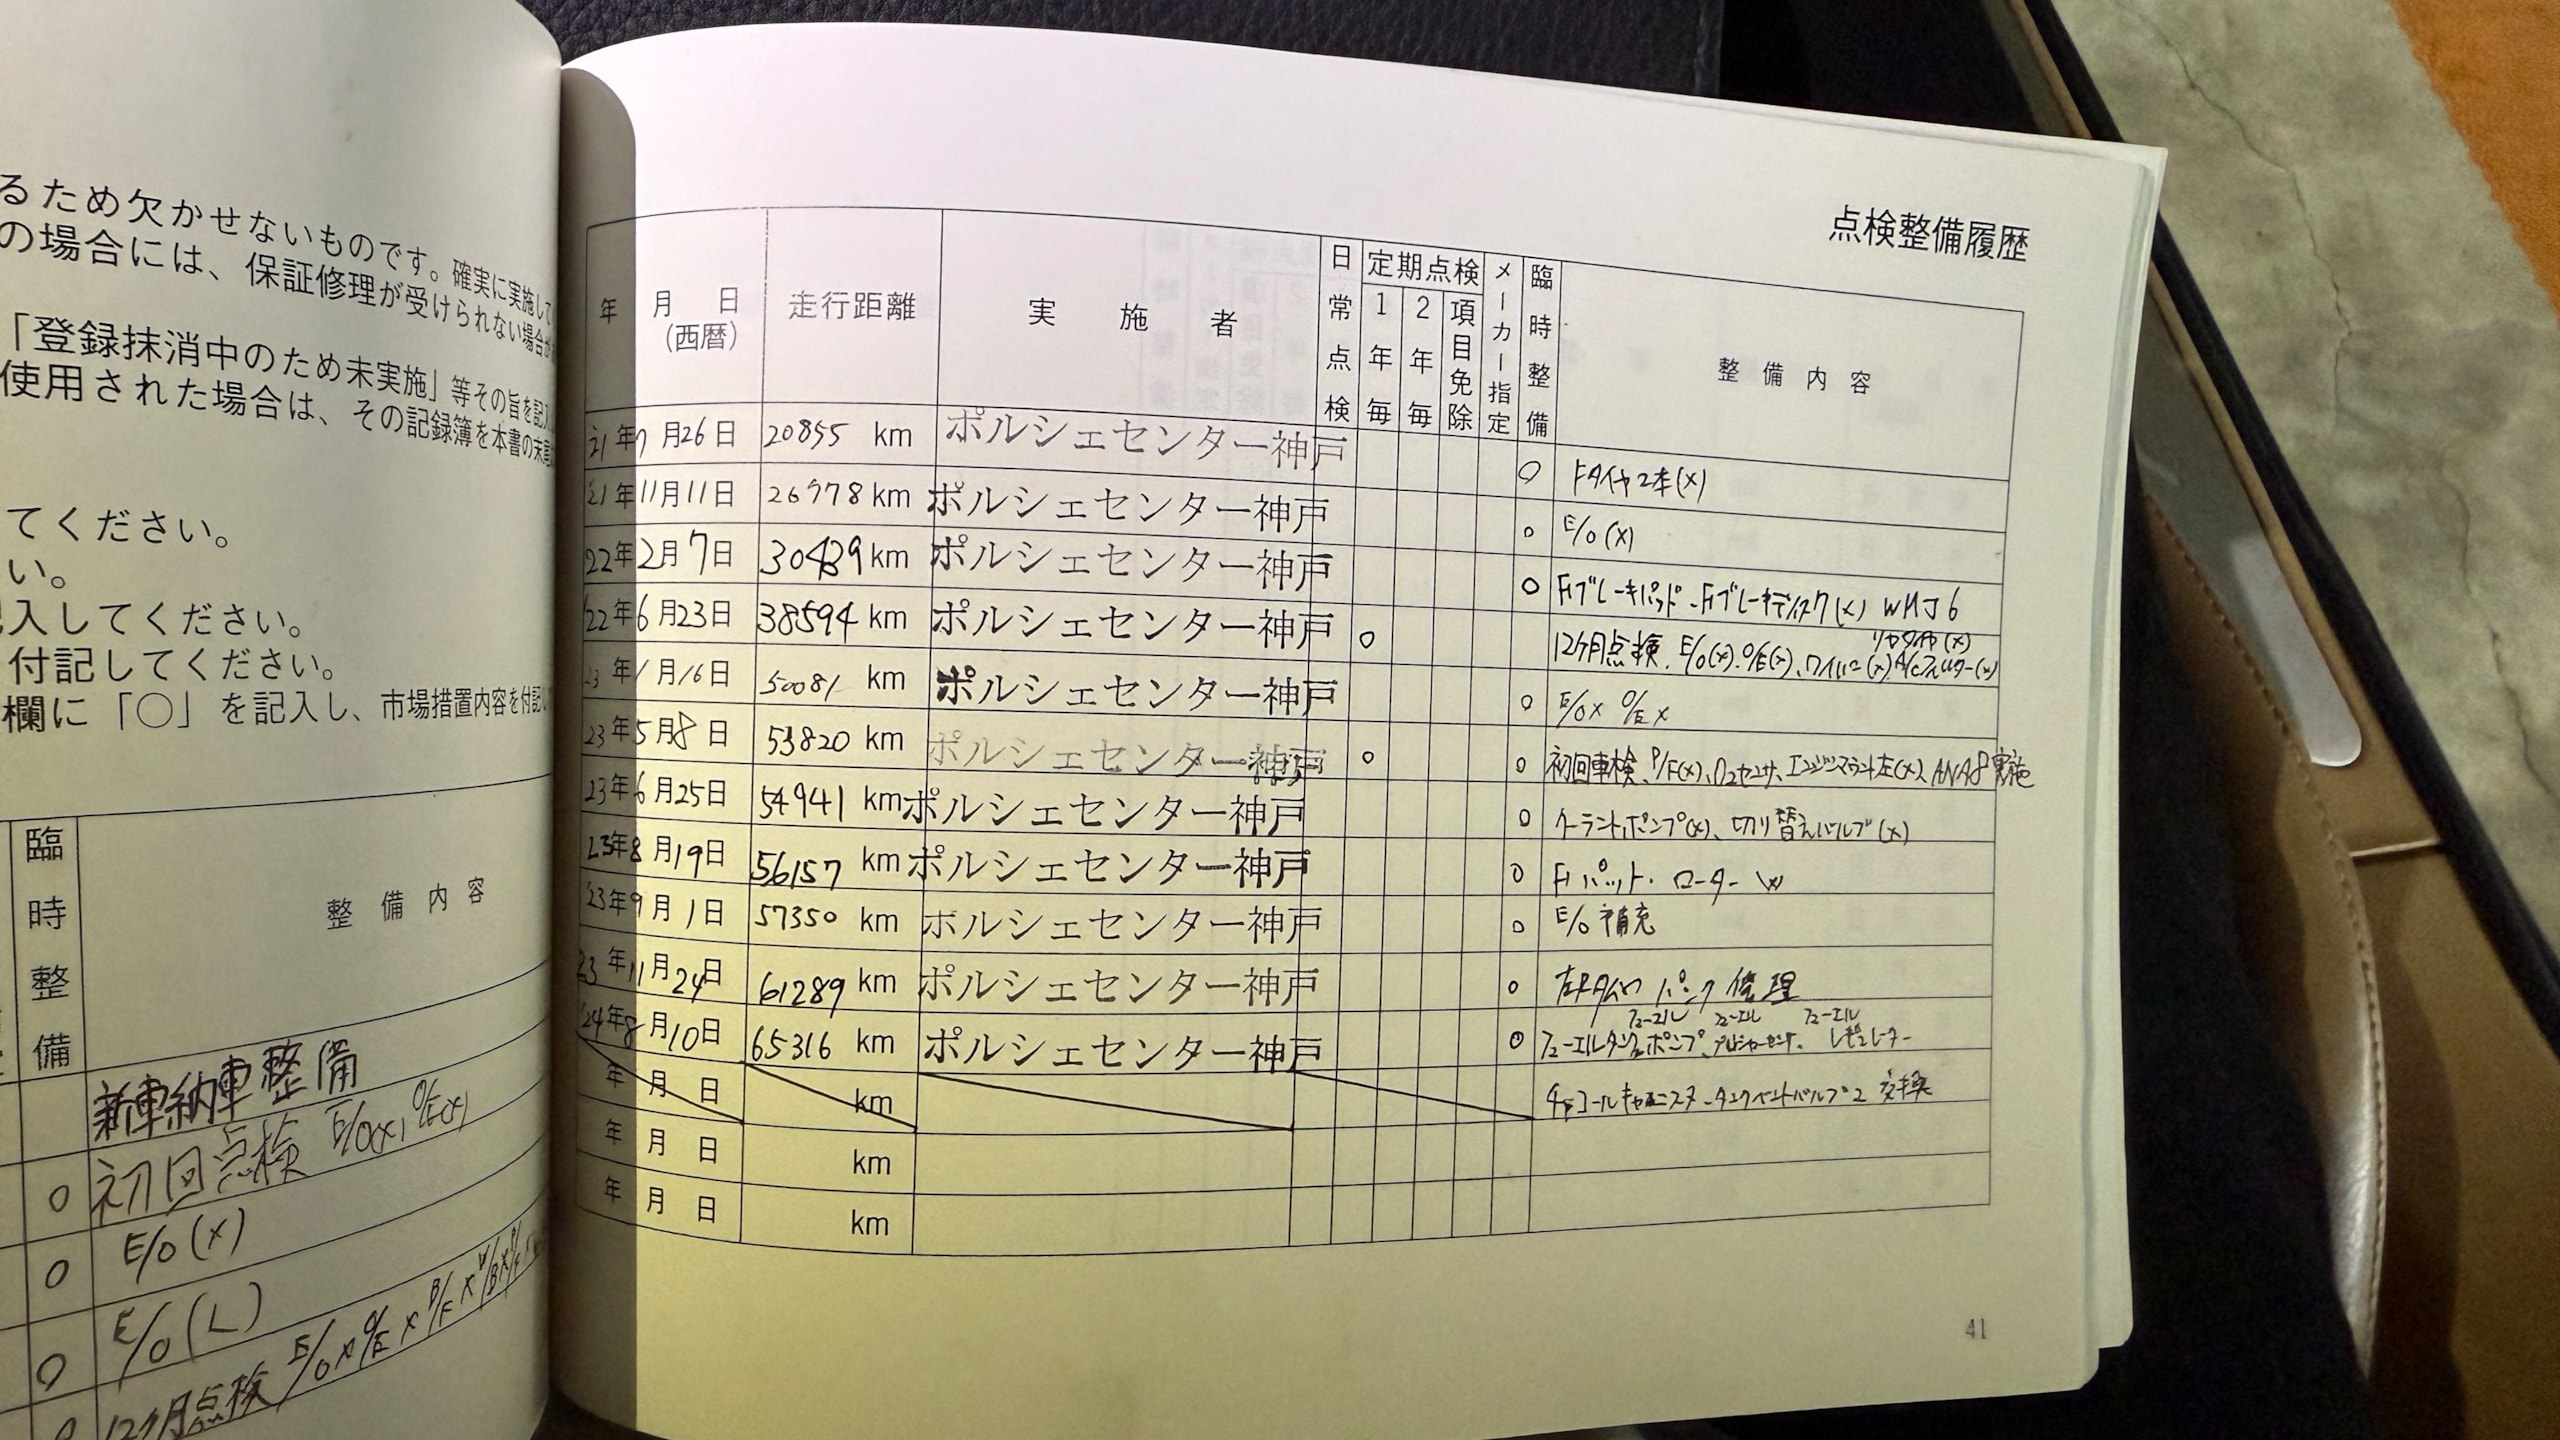 るため欠かせないものです。確実に実施して
の場合には、保証修理が受けられない場合が
「登録抹消中のため未実施」等その旨を記入
使用された場合は、その記録簿を本書の末尾
てください。
い。
記入してください。
付記してください。
欄に「○」を記入し、市場措置内容を付記し
臨時整備 整備内容
新車納車整備
○ 初回点検 E/O(x), O/E(x)
○ E/O(x)
○ E/O(L)
○ 12ケ月点検 E/O x O/E x B/F x W/B x P/F
点検整備履歴
年 月 日(西暦) 走行距離 実施者 日常点検 定期点検 1年毎 2年毎 項目免除 メーカー指定 臨時整備 整備内容
21年7月26日 20855 km ポルシェセンター神戸 ○ Fタイヤ2本(x)
21年11月11日 26778 km ポルシェセンター神戸 ○ E/O(x)
22年2月7日 30439 km ポルシェセンター神戸 ○ Frブレーキパッド・Frブレーキディスク(x) WMJ6
22年6月23日 38594 km ポルシェセンター神戸 ○ 12ケ月点検、E/O(x).O/E(x)、ワイパー(x) A/Cフィルター(x) リヤタイヤ(x)
23年1月16日 50081 km ポルシェセンター神戸 ○ E/O x O/E x
23年5月8日 53820 km ポルシェセンター神戸 ○ ○ 初回車検、P/F(x)、O2センサ、エンジンマウント左(x)、ANA8実施
23年6月25日 54941 km ポルシェセンター神戸 ○ クーラントポンプ(x)、切り替えバルブ(x)
23年8月19日 56157 km ポルシェセンター神戸 ○ Frパット・ローター
23年9月1日 57350 km ポルシェセンター神戸 ○ E/O 補充
23年11月24日 61289 km ポルシェセンター神戸 ○ 左Fタイヤ パンク修理
24年8月10日 65316 km ポルシェセンター神戸 ○ フューエルタンク、フューエルポンプ、フューエルプレッシャーセンサ、フューエルレギュレーター
年 月 日 km チャコールキャニスター・タンクベントバルブ2 交換
年 月 日 km
年 月 日 km
41